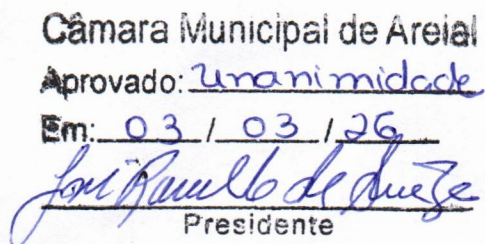 Câmara Municipal de Areial
Aprovado: Unanimidade
Em: 03 / 03 / 26
José de
Presidente